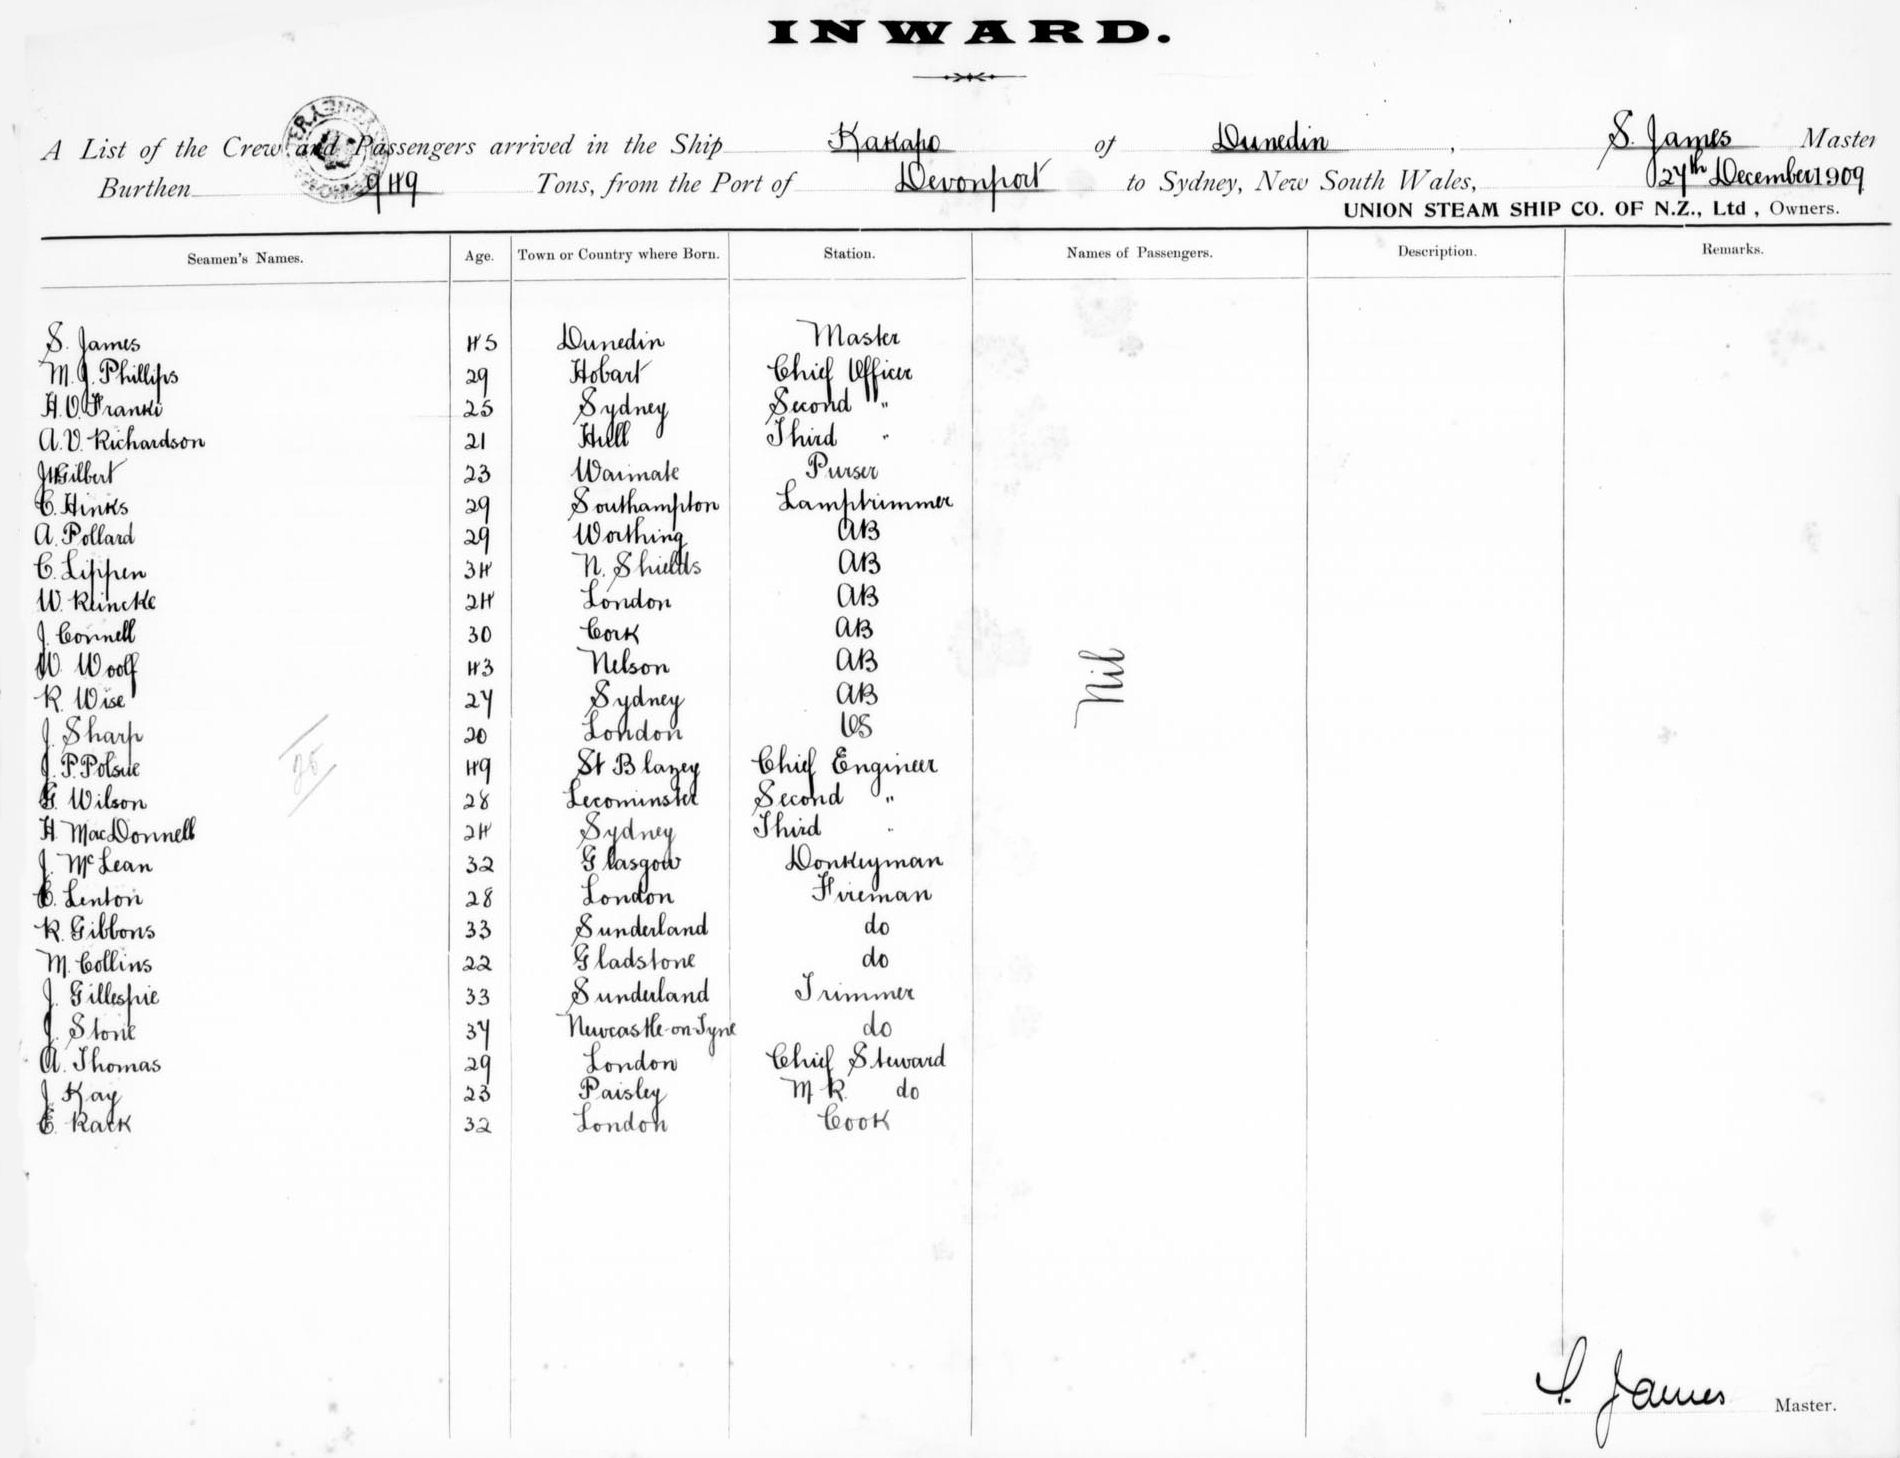 INWARD.
A List of the Crew and Passengers arrived in the Ship Kakapo of Dunedin, S. James Master
Burthen 949 Tons, from the Port of Devonport to Sydney, New South Wales, 27th December 1909
UNION STEAM SHIP CO. OF N.Z., Ltd, Owners.
Seamen's Names. Age. Town or Country where Born. Station. Names of Passengers. Description. Remarks.
S. James 45 Dunedin Master
M. J. Phillips 29 Hobart Chief Officer
H. O. Franki 25 Sydney Second "
A. V. Richardson 21 Hull Third "
Gilbert 23 Waimate Purser
C. Hinks 29 Southampton Lamptrimmer
A. Pollard 29 Worthing AB
C. Lippen 34 N. Shields AB
W. Reincke 24 London AB
J. Connell 30 Cork AB
W. Woolf 43 Nelson AB
R. Wise 27 Sydney AB
J. Sharp 20 London OS
J. P. Polsue 49 St Blazey Chief Engineer
G. Wilson 28 Leominster Second "
H. MacDonnell 24 Sydney Third "
J. McLean 32 Glasgow Donkeyman
C. Lenton 28 London Fireman
R. Gibbons 33 Sunderland do
M. Collins 22 Gladstone do
J. Gillespie 33 Sunderland Trimmer
J. Stone 37 Newcastle-on-Tyne do
A. Thomas 29 London Chief Steward
J. Kay 23 Paisley M R. do
C. Rack 32 London Cook
Nil
25
S. James Master.